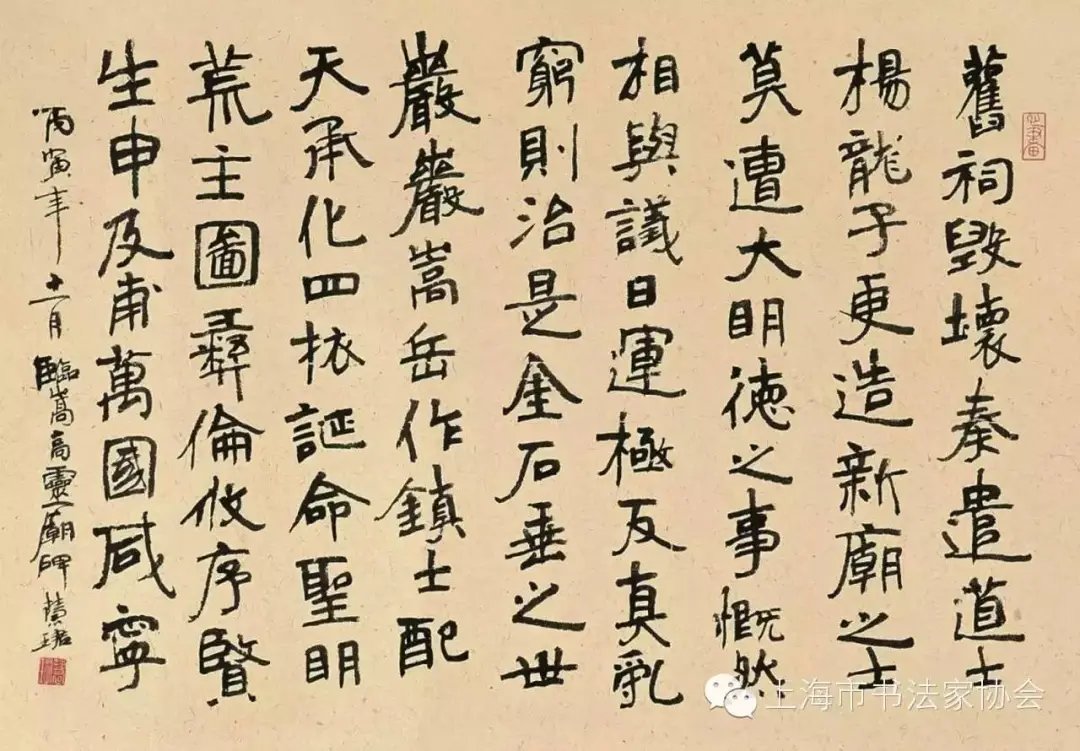 舊祠毀壞奏遣道士
楊龍子更造新廟之士
莫遭大明徳之事慨然
相與議曰運極反真乱
窮則治是金石垂之世
巖巖嵩岳作鎮士配
天承化四株誕命聖明
荒主圖彝倫攸序賢
生申及甫萬國咸寧
丙寅年十一月臨嵩高靈廟碑
上海市书法家协会